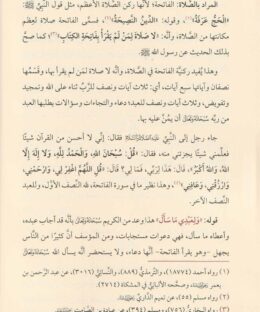 المراد بالصَّلاة: الفاتحة؛ لأنَّها ركن الصَّلاة الأعظم، مثل قول النَّبيِّ ﷺ
«الْحَجُّ عَرَفَةُ»(١)، وقوله: «الدِّينُ النَّصِيحَةُ»(٢)، فسمَّى الفاتحة صلاةً لعظم
مكانتها من الصَّلاة، وأنَّه: «لا صَلاةَ لِمَنْ لَمْ يَقْرَأْ بِفَاتِحَةِ الْكِتَابِ»(٣)؛ كما صحَّ
بذلك الحديث عن رسول الله ﷺ.
وهذا يُفيد ركنيَّة الفاتحة في الصَّلاة، وأنَّه لا صلاة لمن لم يقرأ بها، وقسَّمها
نصفان وآياتها سبع آيات، أي: ثلاث آيات ونصف للرَّبِّ ثناء على الله وتمجيد
وتفويض، وثلاث آيات ونصف للعبد؛ دعاء والتجاءات وسؤالات يطلبها العبد
من ربِّه سُبْحَانَهُ وَتَعَالَى أن يمنَّ عليه بها.
جاء رجل إلى النَّبيِّ فقال: إنِّي لا أحسن من القرآن شيئًا
فعلِّمني شيئًا يجزئني منه، فقال: «قُلْ: سُبْحَانَ اللهِ، وَالْحَمْدُ لِلَّهِ، وَلا إِلَهَ إِلَّا
اللهُ، وَاللهُ أَكْبَرُ»، قال: هذا لِرَبِّي، فما لِي؟ قال: «قُلْ اللَّهُمَّ اغْفِرْ لِي، وَارْحَمْنِي،
وَارْزُقْنِي، وَعَافِنِي»، وهذا نظير ما في سورة الفاتحة، لله النِّصف الأوَّل، وللعبد
النِّصف الآخر.
قوله: «وَلِعَبْدِي مَا سَأَلَ» هذا وعد من الكريم سُبْحَانَهُ وَتَعَالَى بأنَّه قد أجاب عبده،
وأعطاه ما سأل، فهي دعوات مستجابات، ومن المؤسف أنَّ كثيرًا من النَّاس
يجهل -وهو يقرأ الفاتحة- أنَّها دعاء، ولا يستحضر أنَّه يسأل الله سُبْحَانَهُ وَتَعَالَى
(١) رواه أحمد (١٨٧٧٤)، والتِّرمذيُّ (٨٨٩)، والنَّسائيُّ (٣٠١٦)، عن عبد الرَّحمن بن
يعمر، وصحَّحه الألبانيُّ في المشكاة (٢٧١٤).
(٢) رواه مسلم (٥٥)، عن تميم الدَّاريِّ.
(٣) رواه البخاريُّ (٧٥٦)، ومسلم (٣٩٤)، عن عبادة بن الصَّامت